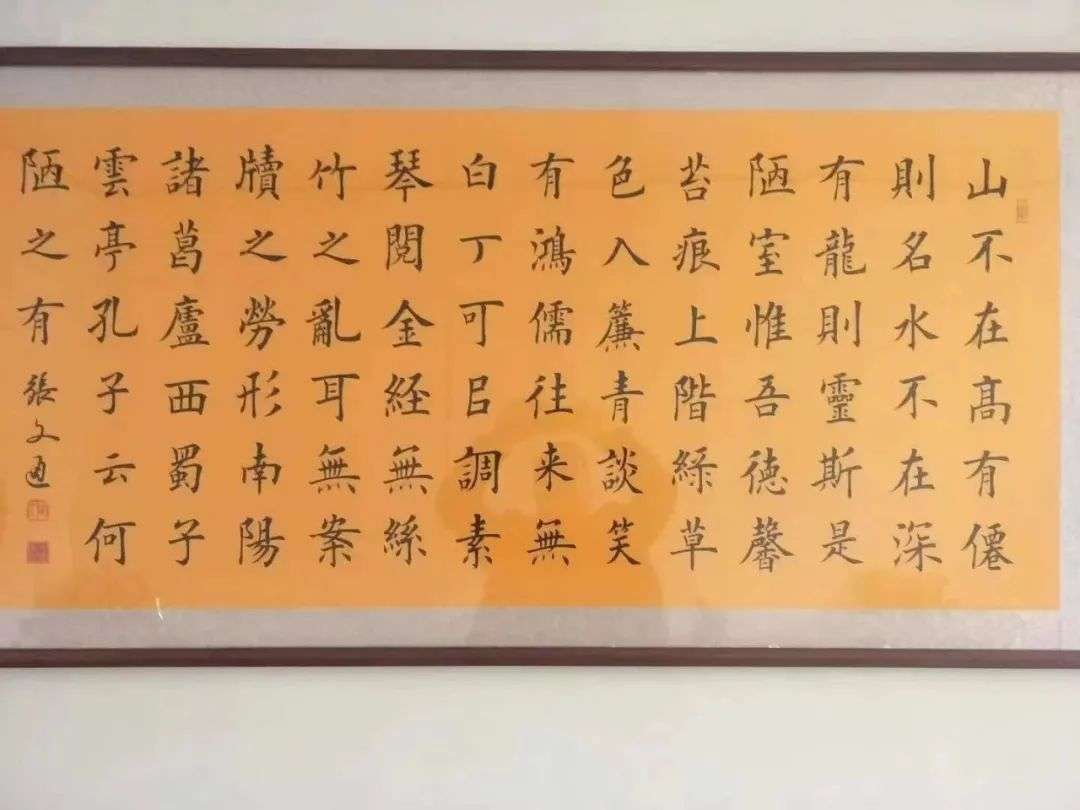 山不在髙有僊
則名水不在深
有龍則靈斯是
陋室惟吾德馨
苔痕上階綠草
色入簾青談笑
有鴻儒往来無
白丁可㠯調素
琴閱金経無絲
竹之亂耳無案
牘之勞形南陽
諸葛廬西蜀子
雲亭孔子云何
陋之有 張文通